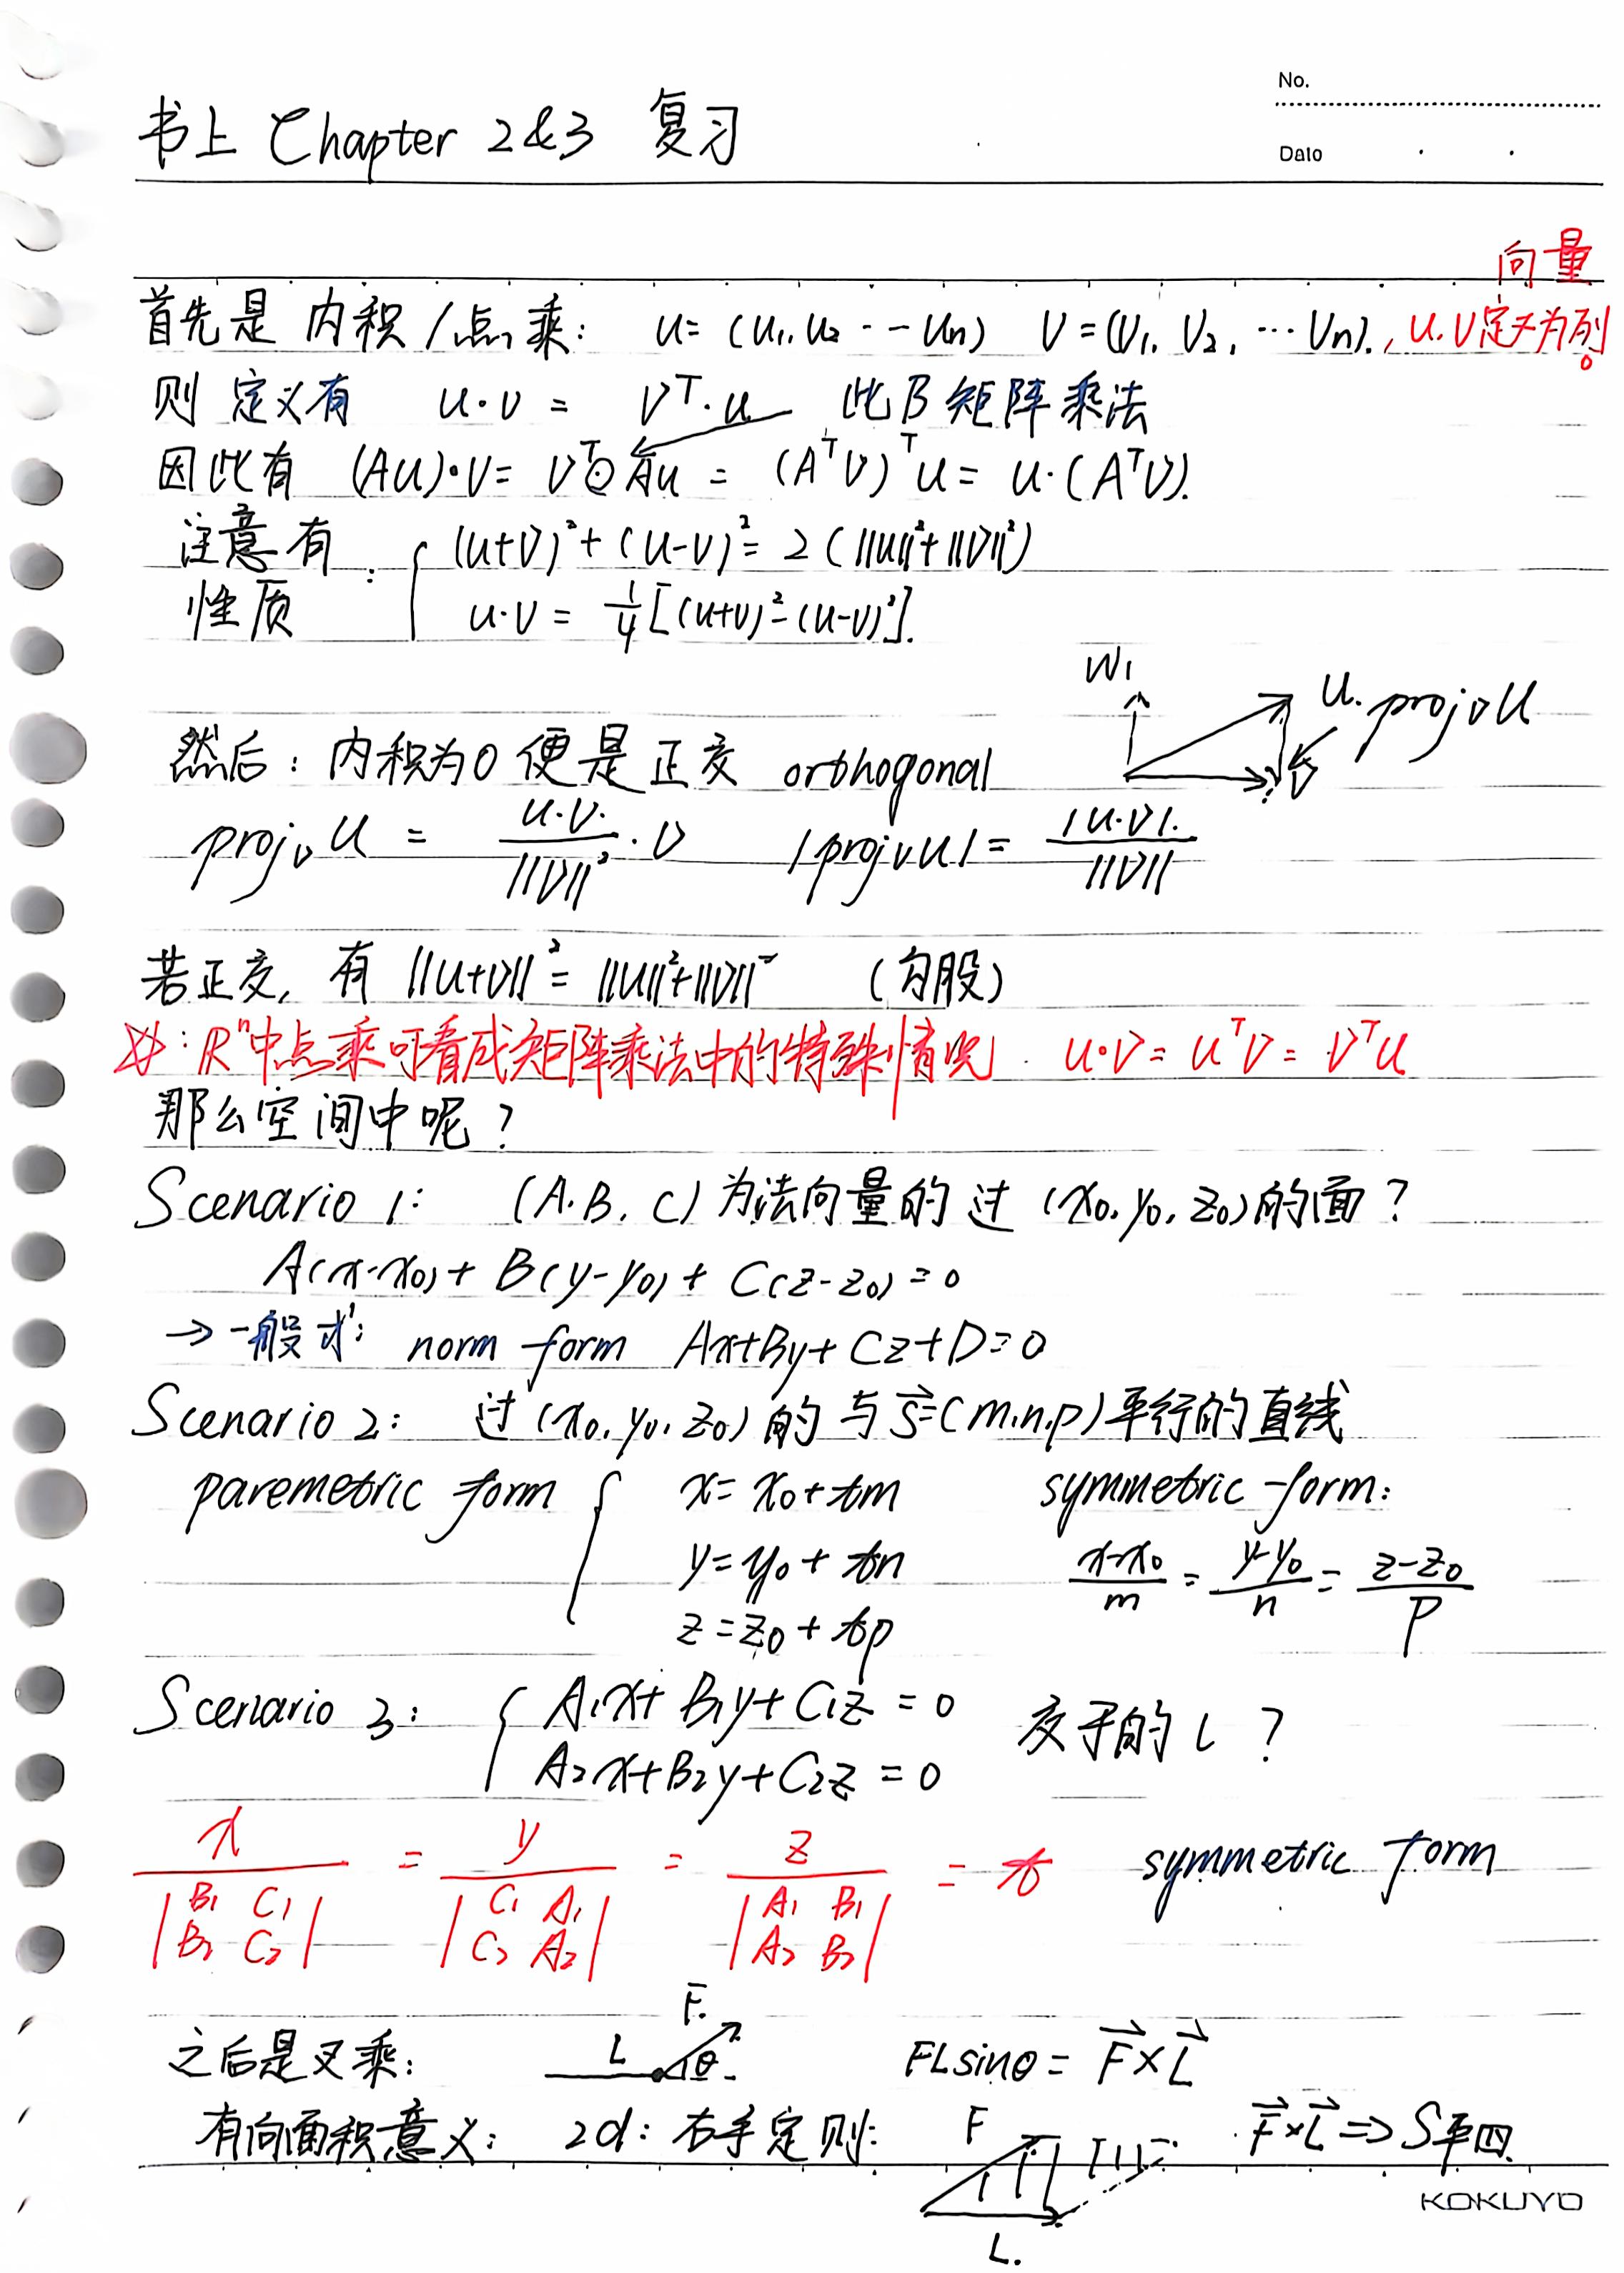 No.
书上 Chapter 2&3 复习
Date
向量
首先是 内积/点乘: u=(u1,u2--un) v=(v1,v2,…vn)., u.v定义为列。
则 定义有 u·v = vᵀ·u 此为矩阵乘法
因此有 (Au)·v= vᵀ⊙Au = (Aᵀv)ᵀu= u·(Aᵀv).
注意有
性质 : { (u+v)²+(u-v)²= 2(||u||²+||v||²)
u·v = 1/4[(u+v)²-(u-v)²].
W1
u. projvu
然后: 内积为0 便是正交 orthogonal
v
projv u = u·v./||v||² · v |projvu|= |u·v|./||v||
若正交, 有 ||u+v||²= ||u||²+||v||² (勾股)
Rⁿ中点乘可看成矩阵乘法中的特殊情况. u·v= uᵀv= vᵀu
那么空间中呢?
Scenario 1: (A.B.C) 为法向量的 过 (x0,y0,z0)的面?
A(x-x0)+ B(y-y0)+ C(z-z0)=0
→一般式: norm form Ax+By+Cz+D=0
Scenario 2: 过(x0,y0,z0) 的 与s⃗=(m.n.p)平行的直线
paremetric form { x= x0+tm symmetric form:
y= y0+tn x-x0/m = y-y0/n = z-z0/p
z=z0+tp
Scenario 3: { A1x+ B1y+C1z =0 交于的 L ?
A2x+B2y+C2z =0
x/|B1 C1 B2 C2| = y/|C1 A1 C2 A2| = z/|A1 B1 A2 B2| = t symmetric form
F.
之后是叉乘: L θ FLsinθ= F⃗×L⃗
有向面积意义: 2d: 右手定则: F F⃗×L⃗ => S平四.
L.
KOKUYO